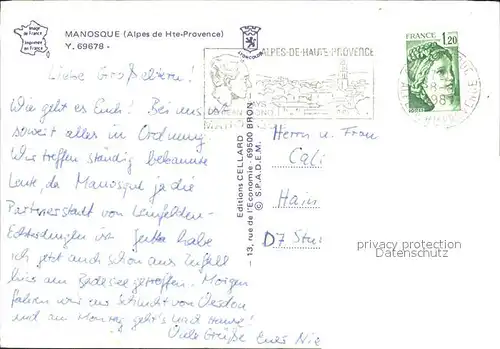 Image de France
Imprimée en France
MANOSQUE (Alpes de Hte-Provence)
Y. 69678 -
FRANCE
1,20
ALPES-DE-HAUTE-PROVENCE
Liebe Großeltern!
Wie geht es Euch! Bei uns ist
soweit alles in Ordnung
Wir treffen ständig bekannte
Leute, da Manosque ja die
Partnerstadt von Leinfelden-
Echterdingen ist. Jutta habe
ich jetzt auch schon aus Zufall
hier am Badesee getroffen. Morgen
fahren wir zur Schlucht von Verdon
und am Montag geht's nach Hause!
Viele Grüße Eure
Editions CELLARD
13, rue de l'Economie - 69500 BRON
© S.P.A.D.E.M.
Herrn u. Frau
Cali
Hain
D7
privacy protection
Datenschutz